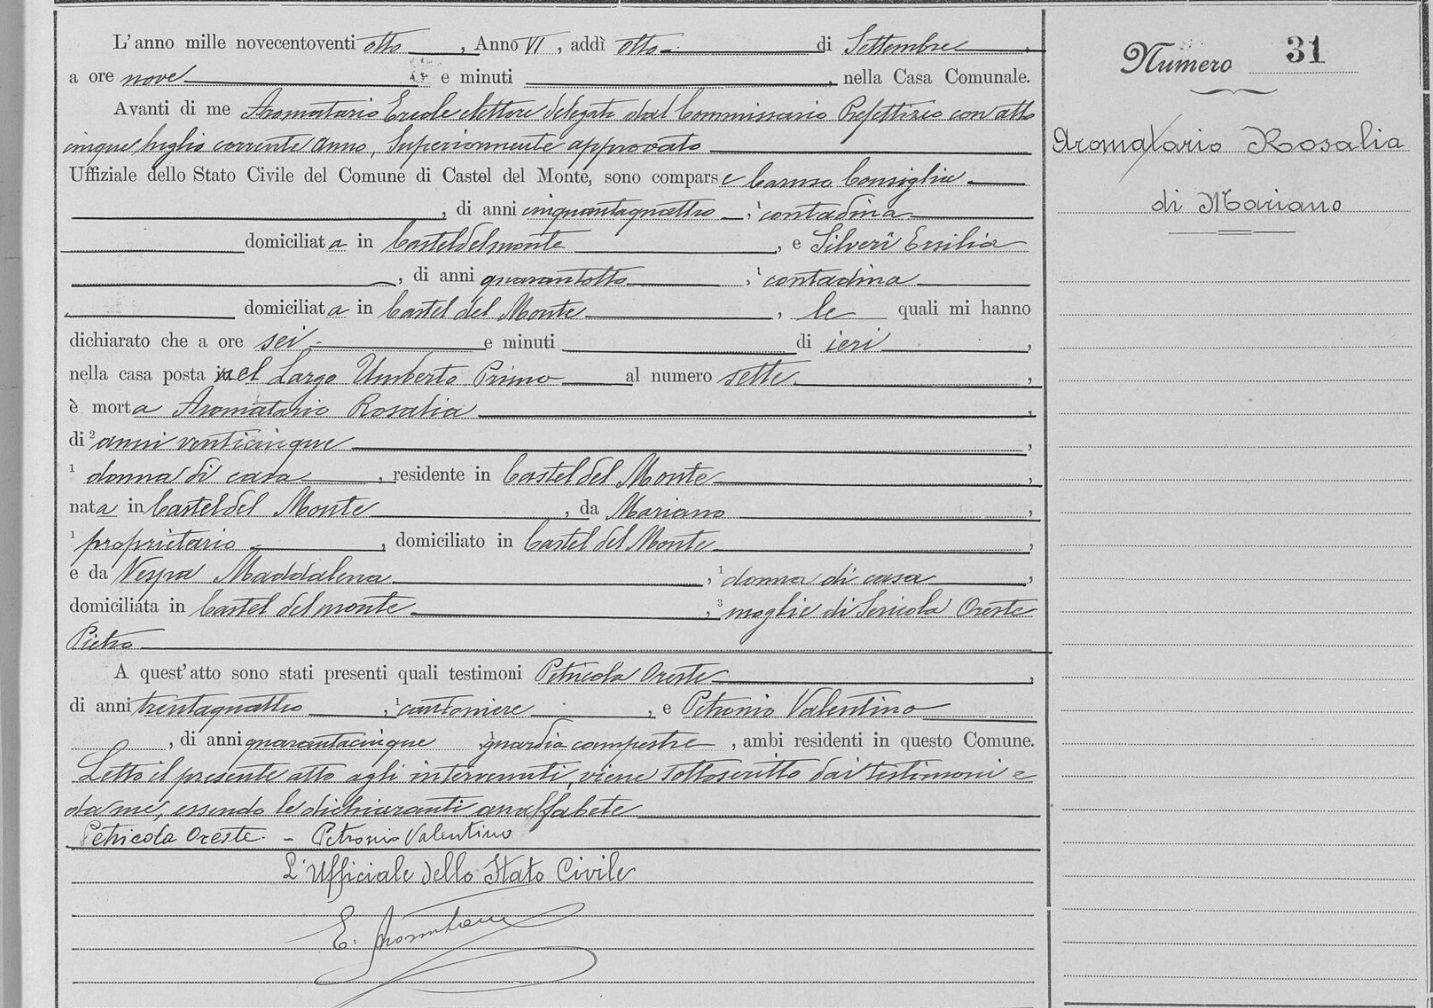 Numero 31
Aromatario Rosalia
di Mariano
L'anno mille novecentoventi otto, Anno VI, addì otto di Settembre,
a ore nove e minuti , nella Casa Comunale.
Avanti di me Aromatario Ercole elettore delegato dal Commissario Prefettizio con atto
cinque luglio corrente anno, Superiormente approvato
Uffiziale dello Stato Civile del Comune di Castel del Monte, sono comparse Caruso Consiglia
, di anni cinquantaquattro, ¹ contadina
domiciliata in Casteldelmonte, e Silveri Ersilia
, di anni quarantotto, ¹ contadina
domiciliata in Castel del Monte, le quali mi hanno
dichiarato che a ore sei e minuti di ieri,
nella casa posta nel Largo Umberto Primo al numero sette,
è morta Aromatario Rosalia,
di ² anni venticinque,
¹ donna di casa, residente in Castel del Monte,
nata in Castel del Monte, da Mariano,
¹ proprietario, domiciliato in Castel del Monte,
e da Vespa Maddalena, ¹ donna di casa,
domiciliata in Castel del monte, ³ moglie di Oreste
Pietro
A quest'atto sono stati presenti quali testimoni Petricola Oreste,
di anni trentaquattro, ¹ cantoniere, e Petronio Valentino
, di anni quarantacinque guardia campestre, ambi residenti in questo Comune.
Letto il presente atto agli intervenuti, viene sottoscritto dai testimoni e
da me, essendo le dichiaranti analfabete
Petricola Oreste - Petronio Valentino
L'Ufficiale dello Stato Civile
E. Aromatario